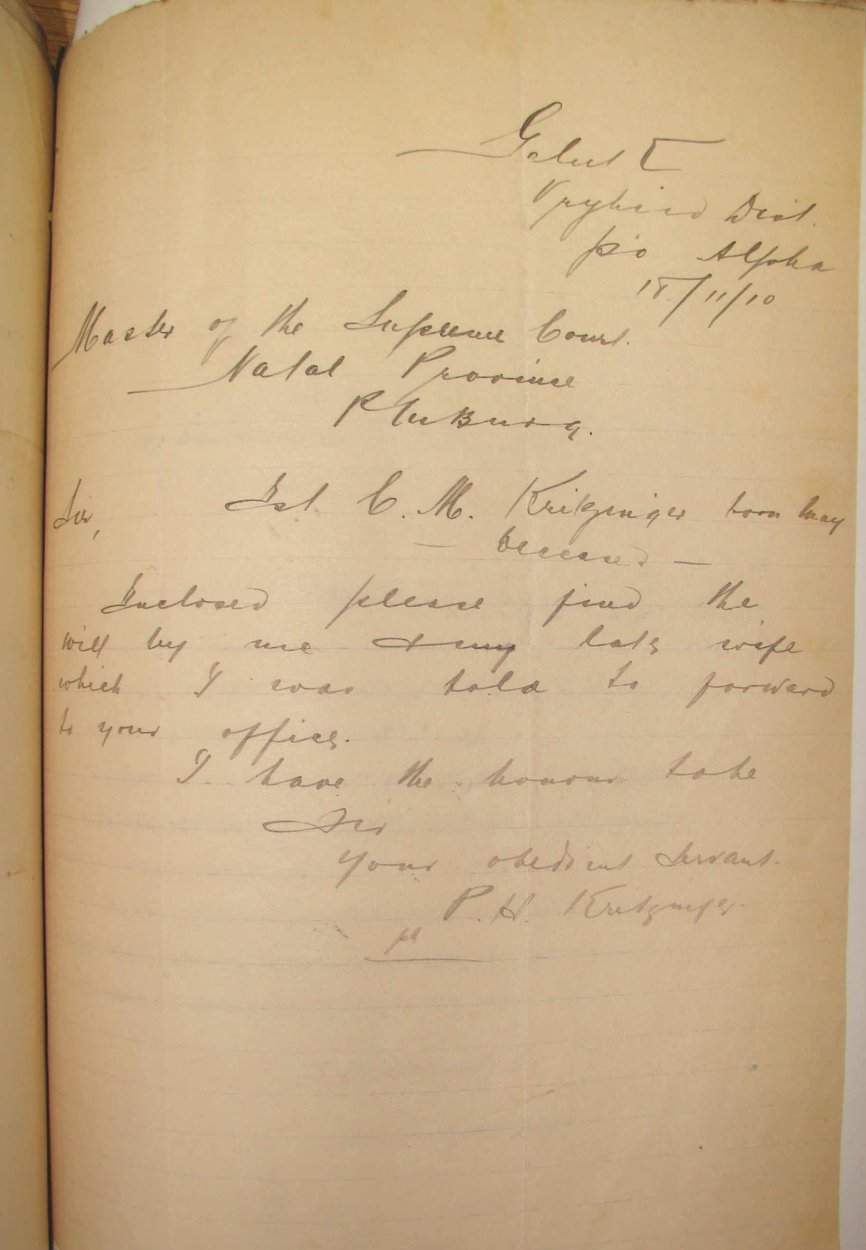 Geluk
Vryheid Dist.
p/o Alpha
18/11/10
Master of the Supreme Court.
Natal Province
PMBurg.
Sir, Est C. M. Kritzinger born May
deceased
Inclosed please find the
will by me & my late wife
which I was told to forward
to your office.
I have the honour to be
Sir
Your obedient Servant.
P. H. Kritzinger